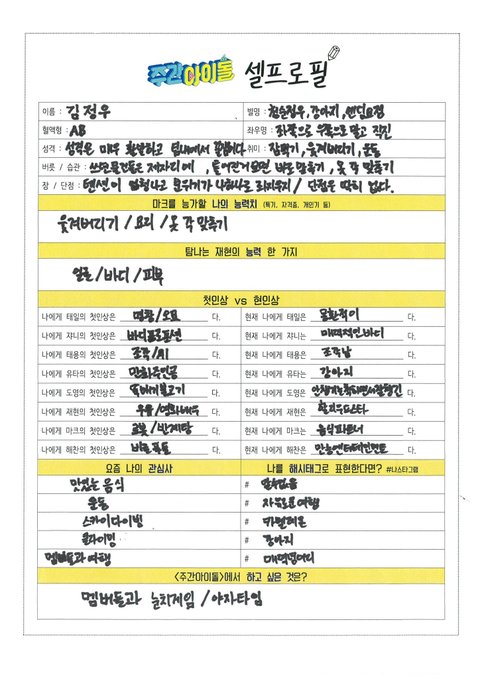 주간아이돌 셀프로필
이름 : 김정우 별명 : 천순정우, 강아지, 센딥요정
혈액형 : AB 좌우명 : 좌쪽으로 우쪽으로 말고 직진
성격 : 성격은 매우 활발하고 팀내에서 취미 : 잠자기, 웃겨버리기, 운동
버릇 / 습관 : 쓰던물건들은 제자리에, 틀어진거 바로 맞추기, 옷 각 맞추기
장 / 단점 : 텐션이 엄청나고 분위기가 나하나로 / 단점은 딱히 없다.
마크를 능가할 나의 능력치 (특기, 자격증, 개인기 등)
웃겨버리기 / 요리 / 옷 각 맞추기
탐나는 재현의 능력 한 가지
얼굴 / 바디 / 피부
첫인상 vs 현인상
나에게 태일의 첫인상은 명창/오묘 다. 현재 나에게 태일은 몽환적이 다.
나에게 쟈니의 첫인상은 바디프로포션 다. 현재 나에게 쟈니는 매력적인바디 다.
나에게 태용의 첫인상은 조각/AI 다. 현재 나에게 태용은 조각남 다.
나에게 유타의 첫인상은 만화주인공 다. 현재 나에게 유타는 강아지 다.
나에게 도영의 첫인상은 다. 현재 나에게 도영은 다.
나에게 재현의 첫인상은 우유/영화배우 다. 현재 나에게 재현은 다.
나에게 마크의 첫인상은 로봇/반계탕 다. 현재 나에게 마크는 음식파트너 다.
나에게 해찬의 첫인상은 다. 현재 나에게 해찬은 만능엔터테인먼트 다.
요즘 나의 관심사 나를 해시태그로 표현한다면? #나스타그램
맛있는 음식 #
운동 # 자유로운여행
스카이다이빙 # 카멜레온
클라이밍 # 강아지
멤버들과 여행 # 매력덩어리
<주간아이돌>에서 하고 싶은 것은?
멤버들과 눈치게임 / 야자타임